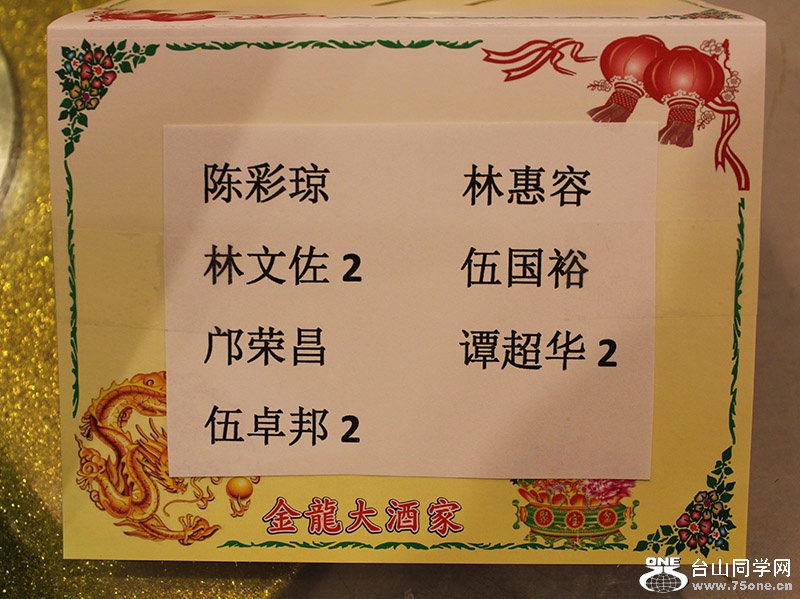 陈彩琼 林惠容
林文佐 2 伍国裕
邝荣昌 谭超华 2
伍卓邦 2
金龍大酒家
ONE 台山同学网
www.75one.cn